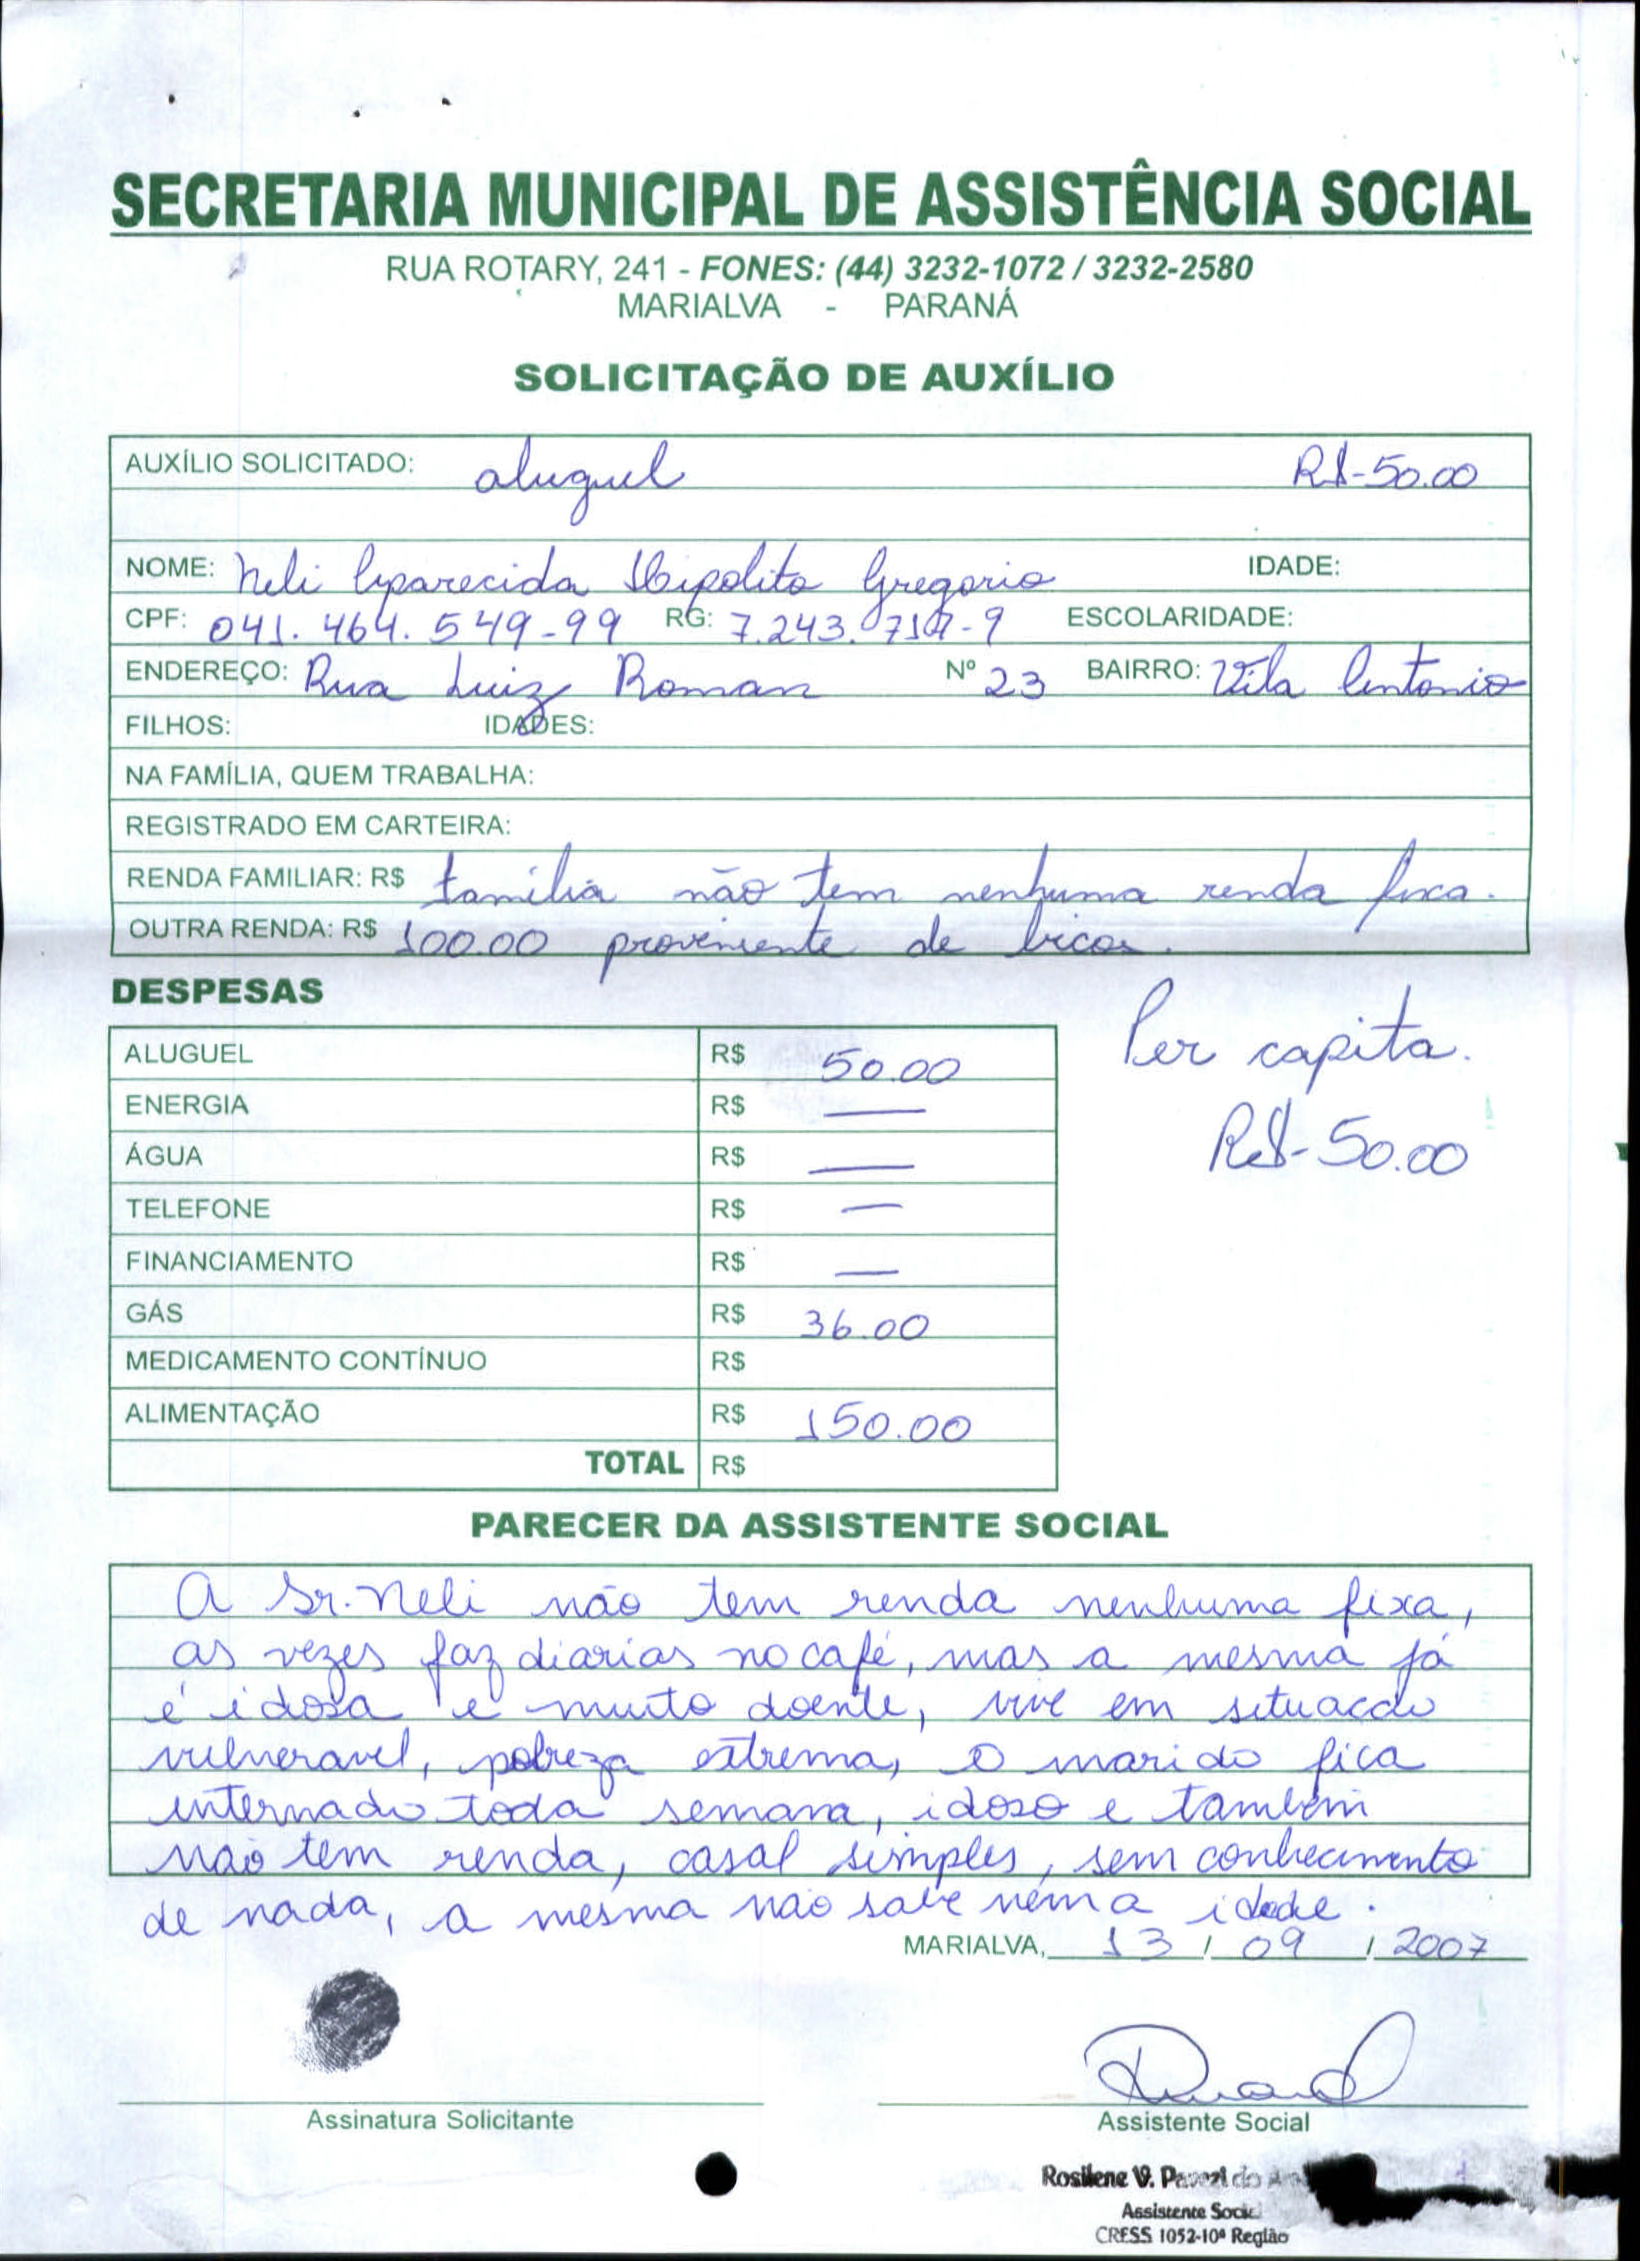 SECRETARIA MUNICIPAL DE ASSISTÊNCIA SOCIAL
RUA ROTARY, 241 - FONES: (44) 3232-1072 / 3232-2580
MARIALVA - PARANÁ
SOLICITAÇÃO DE AUXÍLIO
AUXÍLIO SOLICITADO: aluguel R$-50.00
NOME: Neli Aparecida Hipolito Gregorio IDADE:
CPF: 041.464.549-99 RG: ESCOLARIDADE:
ENDEREÇO: Rua Luiz Roman Nº 23 BAIRRO: Vila Antonio
FILHOS: IDADES:
NA FAMÍLIA, QUEM TRABALHA:
REGISTRADO EM CARTEIRA:
RENDA FAMILIAR: R$ família não tem nenhuma renda fixa.
OUTRA RENDA: R$ 100.00 proveniente de bicos.
DESPESAS
Per capita.
R$-50.00
ALUGUEL R$ 50.00
ENERGIA R$ —
ÁGUA R$ —
TELEFONE R$ —
FINANCIAMENTO R$ —
GÁS R$ 36.00
MEDICAMENTO CONTÍNUO R$
ALIMENTAÇÃO R$ 150.00
TOTAL R$
PARECER DA ASSISTENTE SOCIAL
A Sr. Neli não tem renda nenhuma fixa,
as vezes faz diarias no café, mas a mesma já
é idosa e muito doente, vive em situacão
vulneravel, pobreza extrema, o marido fica
internado toda semana, idoso e também
não tem renda, casal simples, sem conhecimento
de nada, a mesma não sabe nem a idade.
MARIALVA, 13 / 09 / 2007
Assinatura Solicitante
Assistente Social
Rosilene V.
Assistente Social
CRESS 1052-10ª Região